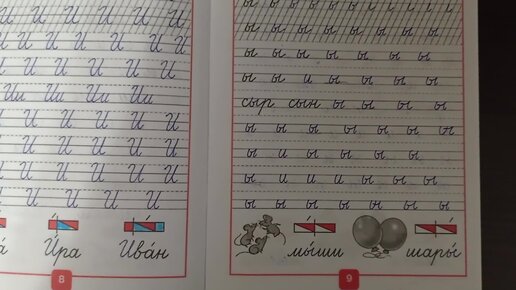 И И И И И
И И И И И И
И И И И И
Ии Ии Ии Ии
И И И И И И
И И И И И
И И И И И И
И И И И
И́ра Ива́н
8
ы ы ы ы ы ы ы
ы ы ы ы ы ы
ы ы и ы ы ы ы
сыр сын ы ы ы ы
ы ы ы ы ы ы ы
ы и ы ы ы ы
ы и и и ы ы ы
ы ы ы ы ы ы ы
мы́ши шары́
9